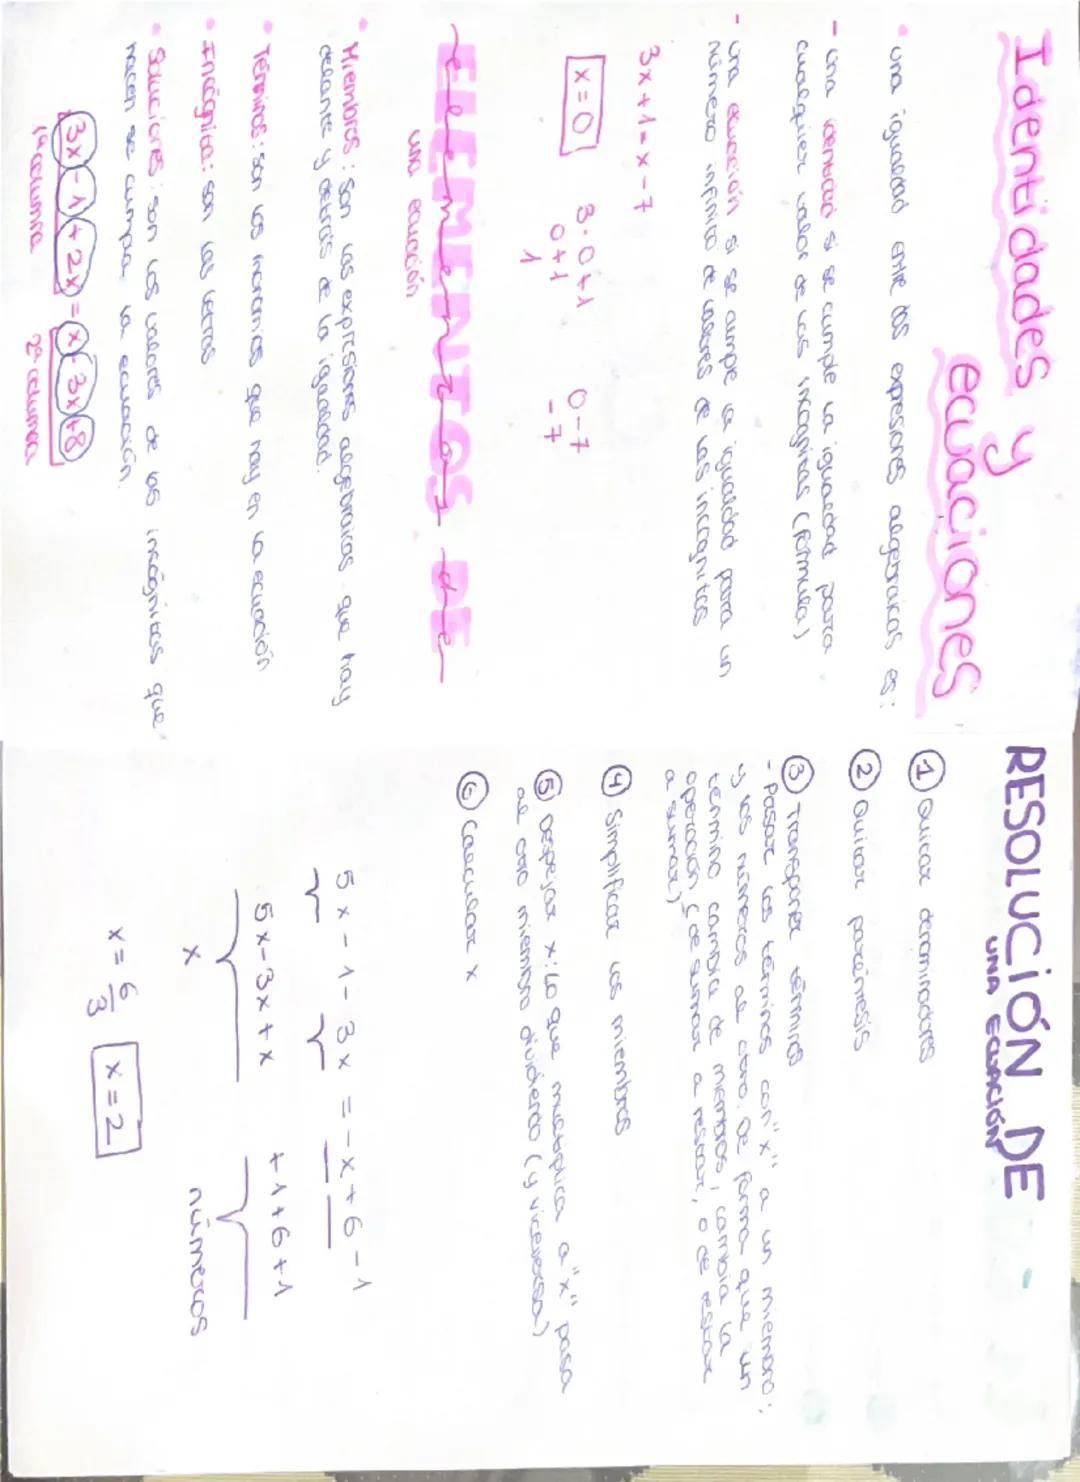 Identidades y
ecuaciones
• una igualdad entre dos expresiones algebraicas es:
- una identidad si se cumple la igualdad para
cualquier valor de las incognitas (fórmula)
- una ecuación si se cumple la igualdad para un
número infinito de valores de las incógnitas
3x+1=x-7
x=0 3·0+1 0-7
0+1 -7
1
ELEMENTOS DE
elementos de
una ecuación
• Miembros: son las expresiones algebraicas que hay
delante y detrás de la igualdad.
• Términos: son los monomios que hay en la ecuación
• Incógnita: son las letras
• Soluciones: son los valores de las incógnitas que
hacen se cumpla la ecuación.
3x-1+2x = x-3x+8
1ª columna 2ª columna
RESOLUCIÓN DE
UNA ECUACIÓN
① Quitar denominadores
② Quitar paréntesis
③ Transponer términos
- Pasar los términos con "x" a un miembro;
y los números al otro. De forma que un
término cambia de miembros, cambia la
operación (de sumar a restar, o de restar
a sumar)
④ Simplificar los miembros
⑤ Despejar x: Lo que multiplica a "x" pasa
al otro miembro dividiendo (y viceversa)
⑥ Calcular x
5x-1-3x=-x+6-1
5x-3x+x +1+6+1
x números
x=6/3 x=2